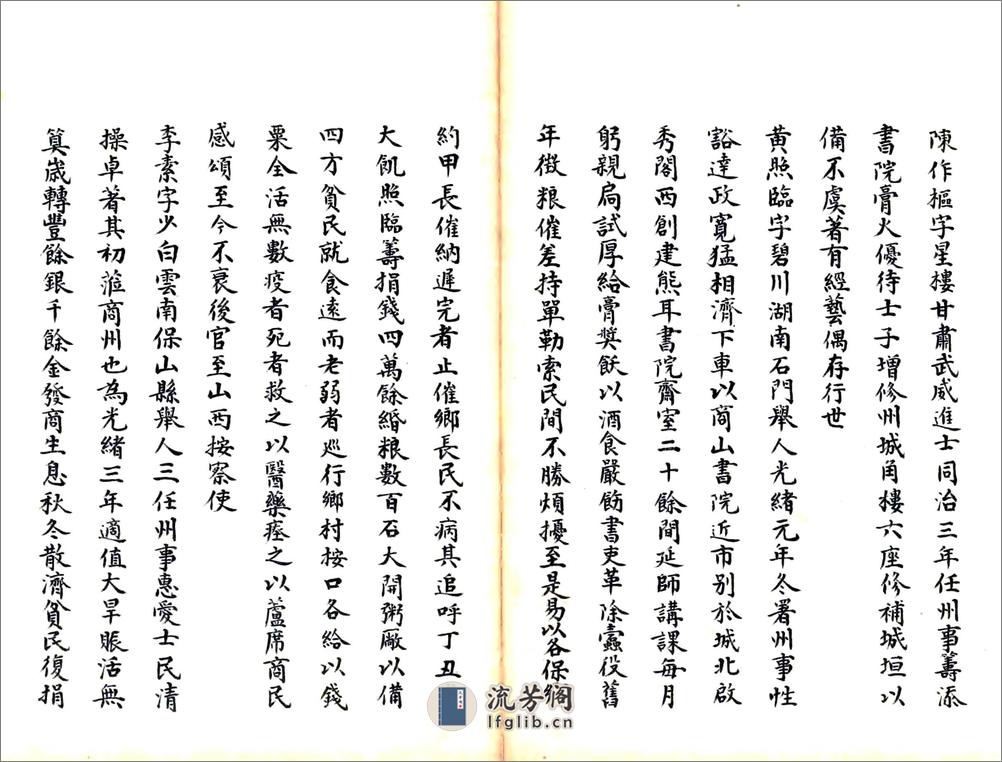 陳作樞字星樓甘肅武威進士同治三年任州事籌添
書院膏火優待士子增修州城角樓六座修補城垣以
備不虞著有經藝偶存行世
黃照臨字碧川湖南石門舉人光緒元年冬署州事性
豁達政寬猛相濟下車以商山書院近市別於城北啟
秀閣西創建熊耳書院齋室二十餘間延師講課每月
躬親扃試厚給膏獎飫以酒食嚴飭書吏革除蠹役舊
年徵粮催差持單勒索民間不勝煩擾至是易以各保鄉
約甲長催納遲完者止催鄉長民不病其追呼丁丑
大飢照臨籌捐錢四萬餘緡粮數百石大開粥厰以備
四方貧民就食遠而老弱者巡行鄉村按口各給以錢
粟全活無數疫者死者救之以醫藥瘞之以蘆席商民
感頌至今不衰後官至山西按察使
李素字少白雲南保山縣舉人三任州事惠愛士民清
操卓著其初蒞商州也為光緒三年適值大旱賑活無
算歲轉豐餘銀千餘金發商生息秋冬散濟貧民復捐
流芳阁
lfglib.cn